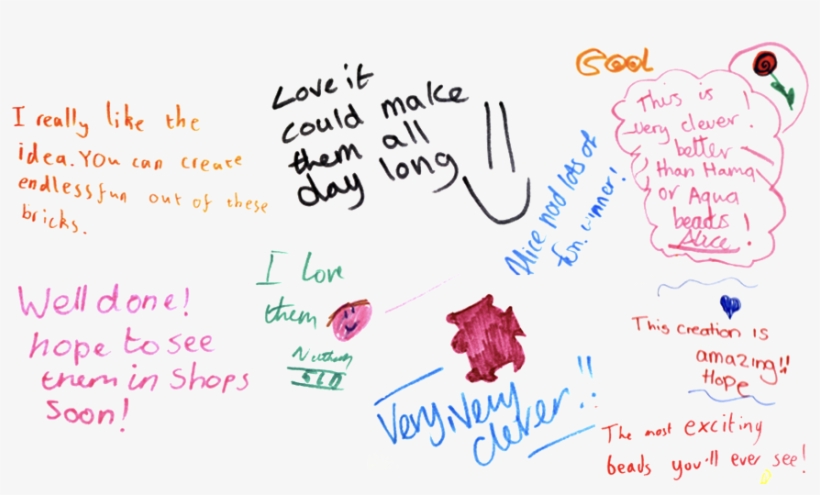 I really like the
idea. You can create
endless fun out of these
bricks.
Love it
could make
them all
day long
Alice had lots of
fun. winner!
Cool
This is
very clever!
better
than Hama
or Aqua
beads!
Alice
Well done!
hope to see
them in shops
soon!
I love
them
Very, very
clever!!
This creation is
amazing!!
Hope
The most exciting
beads you'll ever see!